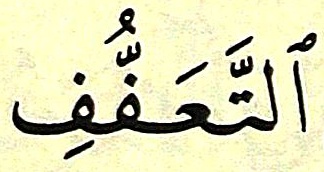 ٱلتَّعَفُّفِ